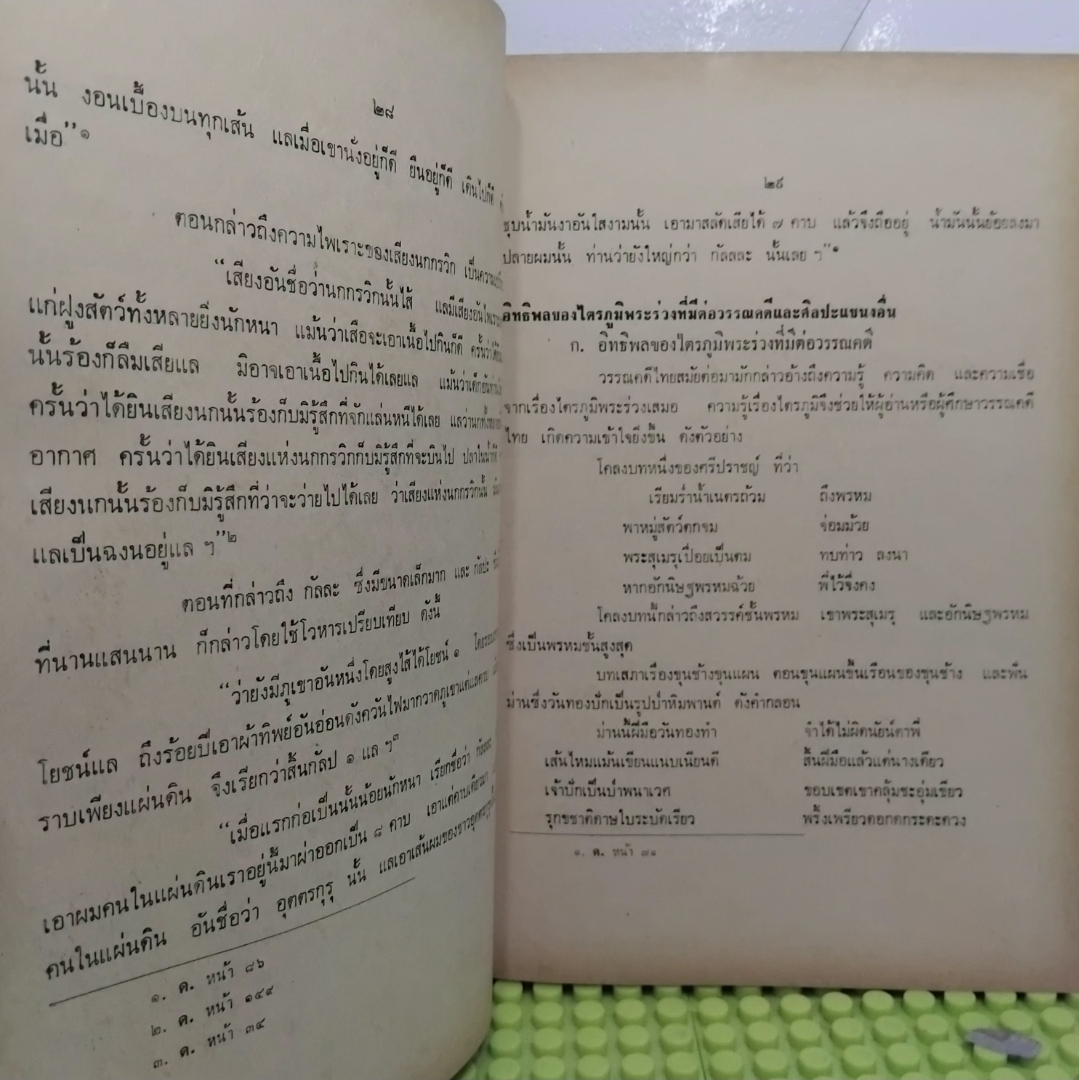 ๒๘
นั้น งอนเบื้องบนทุกเส้น แลเมื่อเขานั่งอยู่ก็ดี ยืนอยู่ก็ดี เดินไปก็ดี
เมื่อ"๑
ตอนกล่าวถึงความไพเราะของเสียงนกกรวิก
"เสียงอันชื่อว่านกกรวิกนั้นไส้ แลมีเสียงอันไพเราะ
แก่ฝูงสัตว์ทั้งหลายยิ่งนักหนา แม้นว่าเสือจะเอาเนื้อไปกินก็ดี ครั้นว่าได้ยิน
นั้นร้องก็ลืมเสียแล มิอาจเอาเนื้อไปกินได้เลยแล แม้นว่าเด็กอัน
ครั้นว่าได้ยินเสียงนกนั้นร้องก็บมิรู้สึกที่จักแล่นหนีได้เลย แลว่านกทั้งหลาย
อากาศ ครั้นว่าได้ยินเสียงแห่งนกกรวิกก็บมิรู้สึกที่จะบินไป ปลาในน้ำก็ดี
เสียงนกนั้นร้องก็บมิรู้สึกที่ว่าจะว่ายไปได้เลย ว่าเสียงแห่งนกกรวิกนั้น
แลเป็นฉงนอยู่แล ฯ"๒
ตอนที่กล่าวถึง กัลละ ซึ่งมีขนาดเล็กมาก และ กัลป
ที่นานแสนนาน ก็กล่าวโดยใช้โวหารเปรียบเทียบ ดังนี้
"ว่ายังมีภูเขาอันหนึ่งโดยสูงไส้ได้โยชน์ ๑
โยชน์แล ถึงร้อยปีเอาผ้าทิพย์อันอ่อนดังควันไฟมากวาดภูเขาแต่แลคาบ
ราบเพียงแผ่นดิน จึงเรียกว่าสิ้นกัลป ๑ แล ฯ๓
"เมื่อแรกก่อเป็นนั้นน้อยนักหนา เรียกชื่อว่า กัลละ
เอาผมคนในแผ่นดินเราอยู่นี้มาผ่าออกเป็น ๘ คาบ เอาแต่คาบเดียวมา
คนในแผ่นดิน อันชื่อว่า อุตตรกุรุ นั้น แลเอาเส้นผมของชาวอุตตรกุรุ
๑. ค. หน้า ๘๖
๒. ค. หน้า ๑๔๙
๓. ค. หน้า ๓๔
๒๙
ชุบน้ำมันงาอันใสงามนั้น เอามาสลัดเสียได้ ๗ คาบ แล้วจึงถืออยู่ น้ำมันนั้นย้อยลงมา
ปลายผมนั้น ท่านว่ายังใหญ่กว่า กัลละ นั้นเลย ฯ"๑
อิทธิพลของไตรภูมิพระร่วงที่มีต่อวรรณคดีและศิลปะแขนงอื่น
ก. อิทธิพลของไตรภูมิพระร่วงที่มีต่อวรรณคดี
วรรณคดีไทยสมัยต่อมามักกล่าวอ้างถึงความรู้ ความคิด และความเชื่อ
จากเรื่องไตรภูมิพระร่วงเสมอ ความรู้เรื่องไตรภูมิจึงช่วยให้ผู้อ่านหรือผู้ศึกษาวรรณคดี
ไทย เกิดความเข้าใจยิ่งขึ้น ดังตัวอย่าง
โคลงบทหนึ่งของศรีปราชญ์ ที่ว่า
เรียมร่ำน้ำเนตรถ้วม ถึงพรหม
พาหมู่สัตว์ตกจม จ่อมม้วย
พระสุเมรุเปื่อยเป็นตม ทบท่าว ลงนา
หากอักนิษฐพรหมฉ้วย พี่ไว้จึ่งคง
โคลงบทนี้กล่าวถึงสวรรค์ชั้นพรหม เขาพระสุเมรุ และอักนิษฐพรหม
ซึ่งเป็นพรหมชั้นสูงสุด
บทเสภาเรื่องขุนช้างขุนแผน ตอนขุนแผนขึ้นเรือนของขุนช้าง และพ้น
ม่านซึ่งวันทองปักเป็นรูปป่าหิมพานต์ ดังคำกลอน
ม่านนี้ฝีมือวันทองทำ จำได้ไม่ผิดนัยน์ตาพี่
เส้นไหมแม้นเขียนแนบเนียนดี สิ้นฝีมือแล้วแต่นางเดียว
เจ้าปักเป็นป่าพนาเวศ ขอบเขตเขาคลุ้มชะอุ่มเขียว
รุกขชาติดาษใบระบัดเรียว พริ้งเพรียวดอกดกระดะดวง
๑. ค. หน้า ๓๑